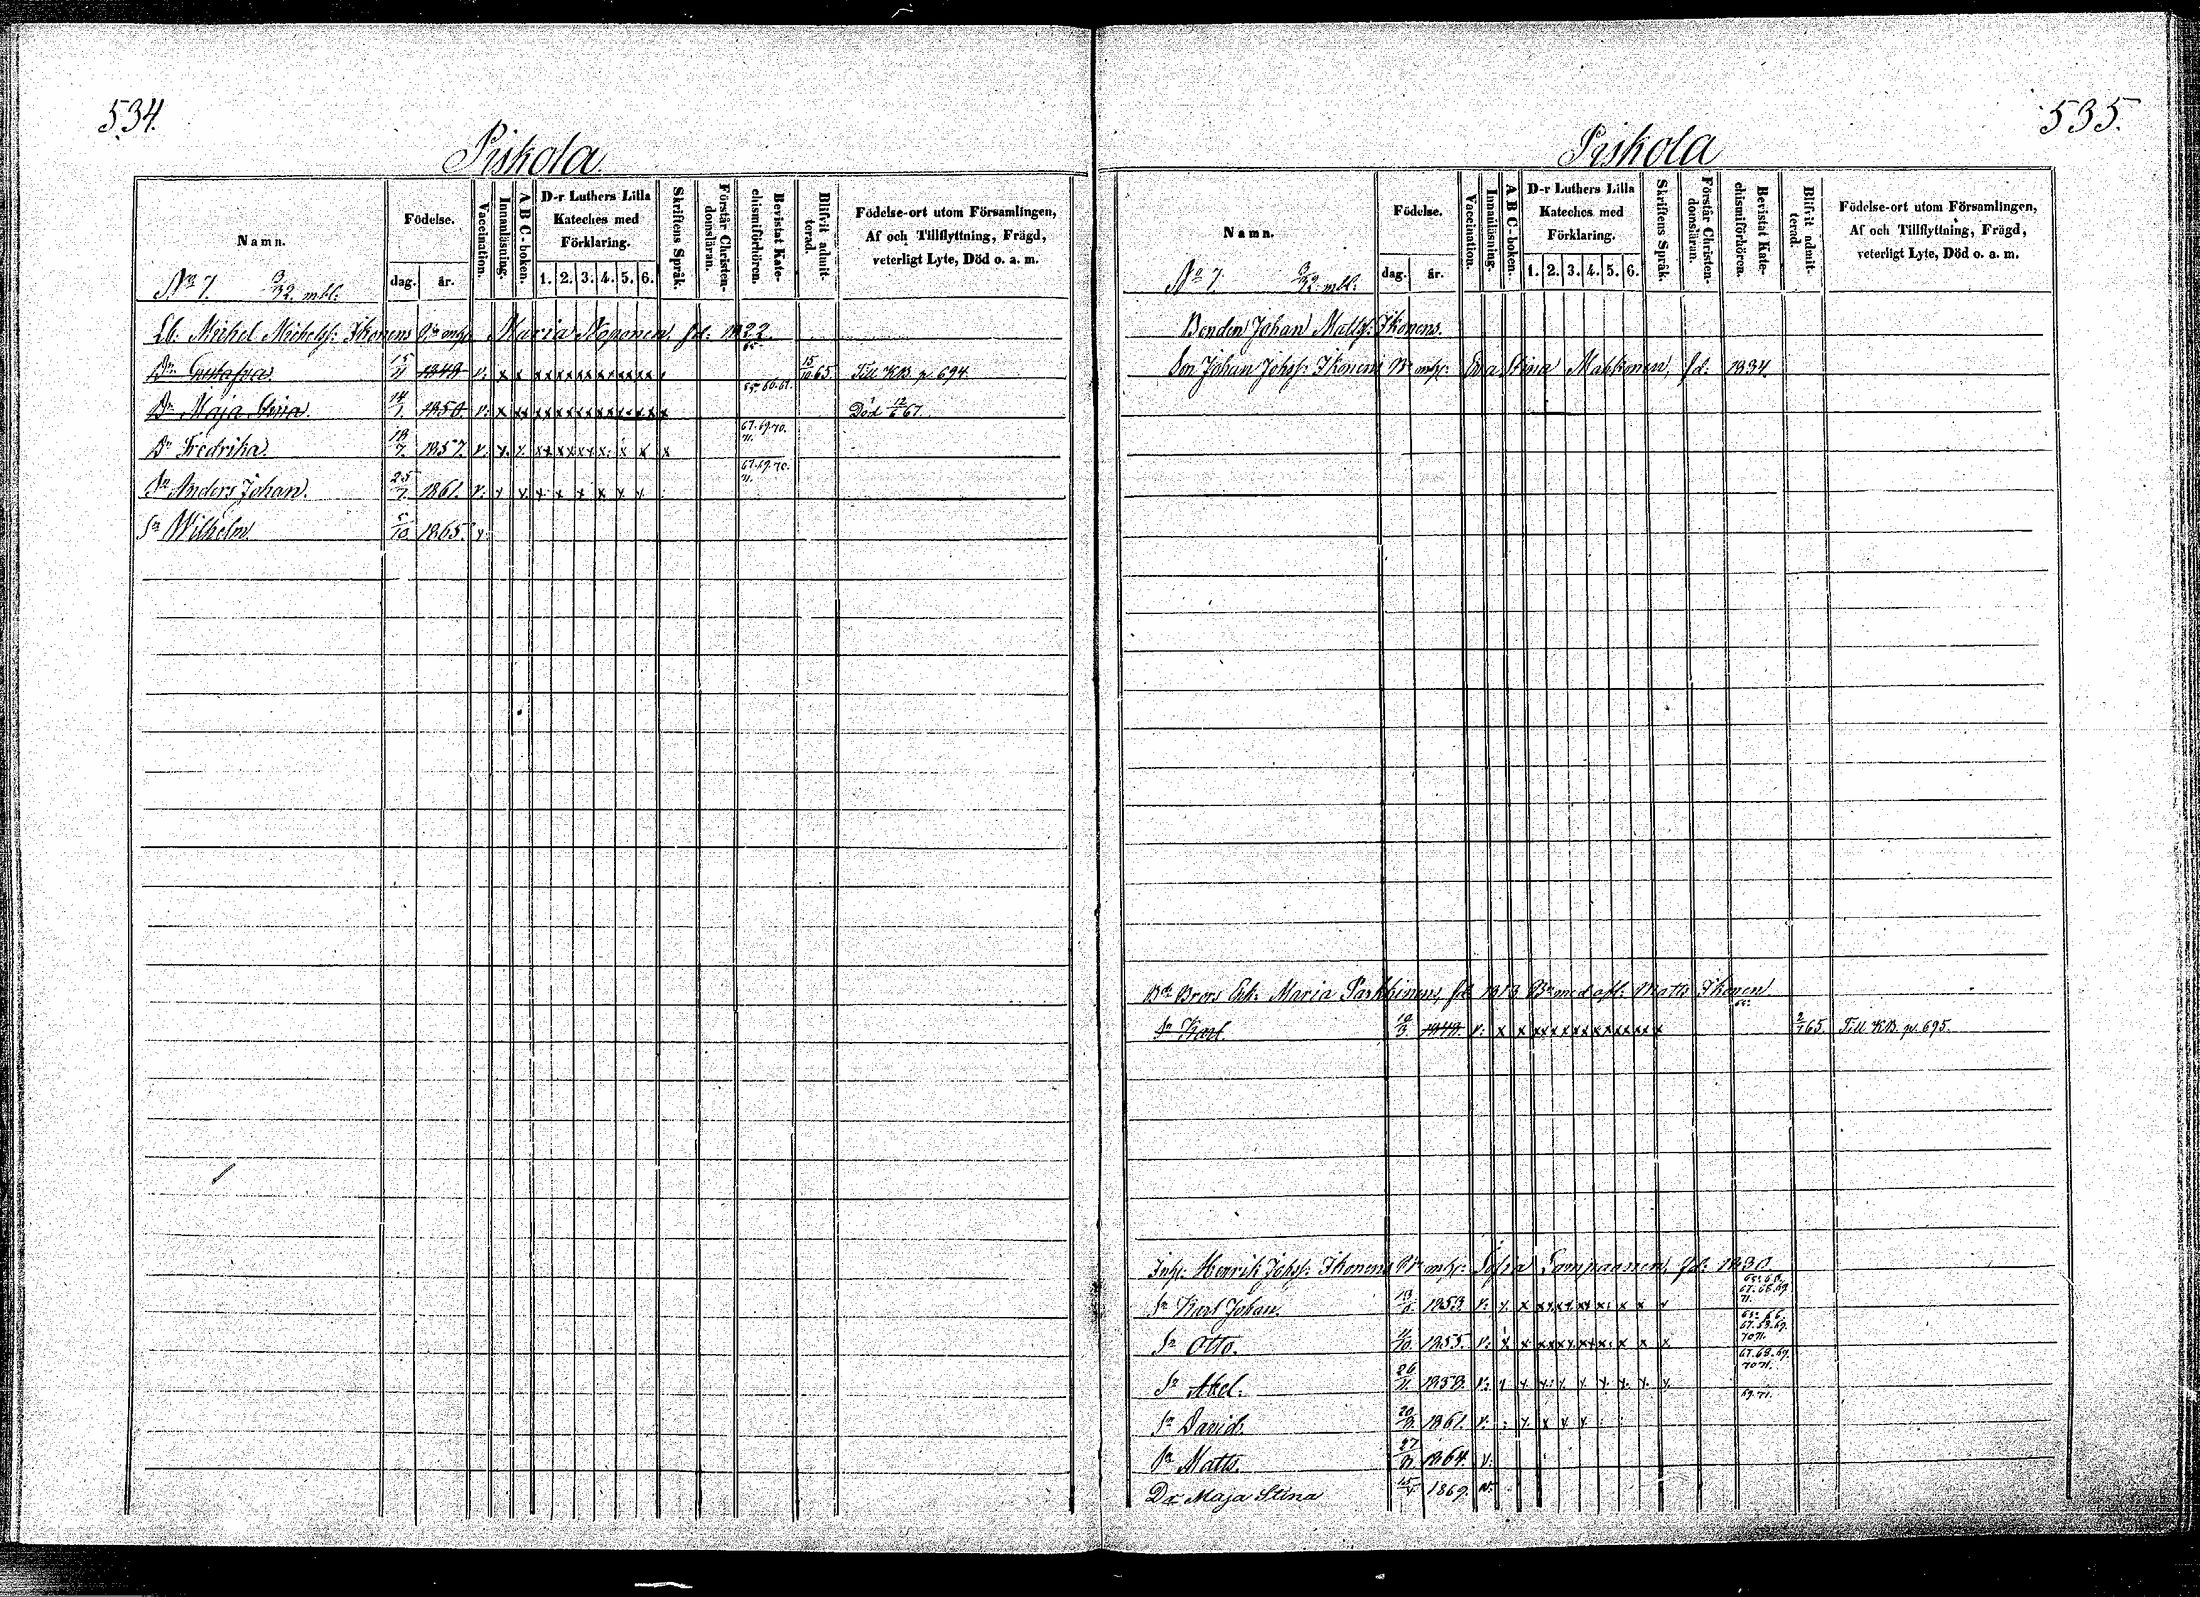 534.
Piskola
Namn.
Födelse.
dag. år.
Vaccination.
Innanläsning.
A B C-boken.
D-r Luthers Lilla
Kateches med
Förklaring.
1. 2. 3. 4. 5. 6.
Skriftens Språk.
Förstår Christen-
domsläran.
Bevistat Kate-
chismiförhören.
Blifvit admit-
terad.
Födelse-ort utom Församlingen,
Af och Tillflyttning, Frägd,
veterligt Lyte, Död o. a. m.
No 7. 9/32 mbl:
Lb. Michel Michelss: Ikonens Br m hu: Maria Noponen, fd: 1822
65.
Dr Gustafva. 15/11 1848 v: x x x x x x x x x x x x 15/10 65. Till KB. p. 694.
65. 66. 67.
Dr Maja Stina. 14/1 1850 v: x x x x x x x x x x x x x Död 12/6 67.
67. 69. 70.
71.
Dr Fredrika. 18/7 1857. v: x x x x x x x x x x x
67. 69. 70.
71.
Sn Anders Johan. 25/7 1861. v: x x x x x x x x
Sn Wilhelm. 5/10 1865. v:
535.
Piskola
Namn.
Födelse.
dag. år.
Vaccination.
Innanläsning.
A B C-boken.
D-r Luthers Lilla
Kateches med
Förklaring.
1. 2. 3. 4. 5. 6.
Skriftens Språk.
Förstår Christen-
domsläran.
Bevistat Kate-
chismiförhören.
Blifvit admit-
terad.
Födelse-ort utom Församlingen,
Af och Tillflyttning, Frägd,
veterligt Lyte, Död o. a. m.
No 7. 9/32 mbl:
Bonden Johan Matss: Ikonens.
Son Johan Johss: Ikonens Br m hu: Eva Stina Makkonen, fd: 1834.
Bds Brors Enk: Maria Parkkinen, fd 1813 Br med afl: Matts Ikonen.
65.
Sn Karl. 19/3 1849. v: x x x x x x x x x x x x x 2/7 65. Till KB. p. 695.
Inh: Henrik Johss: Ikonens Br m hu: Sofia Tompaanen, fd: 1830.
65. 66.
67. 68. 69.
71.
Sn Karl Johan. 13/6 1853 v: x x x x x x x x x x x
65. 66.
67. 68. 69.
70 71.
Sn Otto. 11/10 1855. v: x x x x x x x x x x x
67. 68. 69.
70 71.
Sn Abel. 26/11 1858. v: x x x x x x x x x
69. 71.
Sn David. 20/8 1861. v: x x x x
Sn Matts. 27/8 1864. v:
Dr Maja Stina 15/5 1869. v: